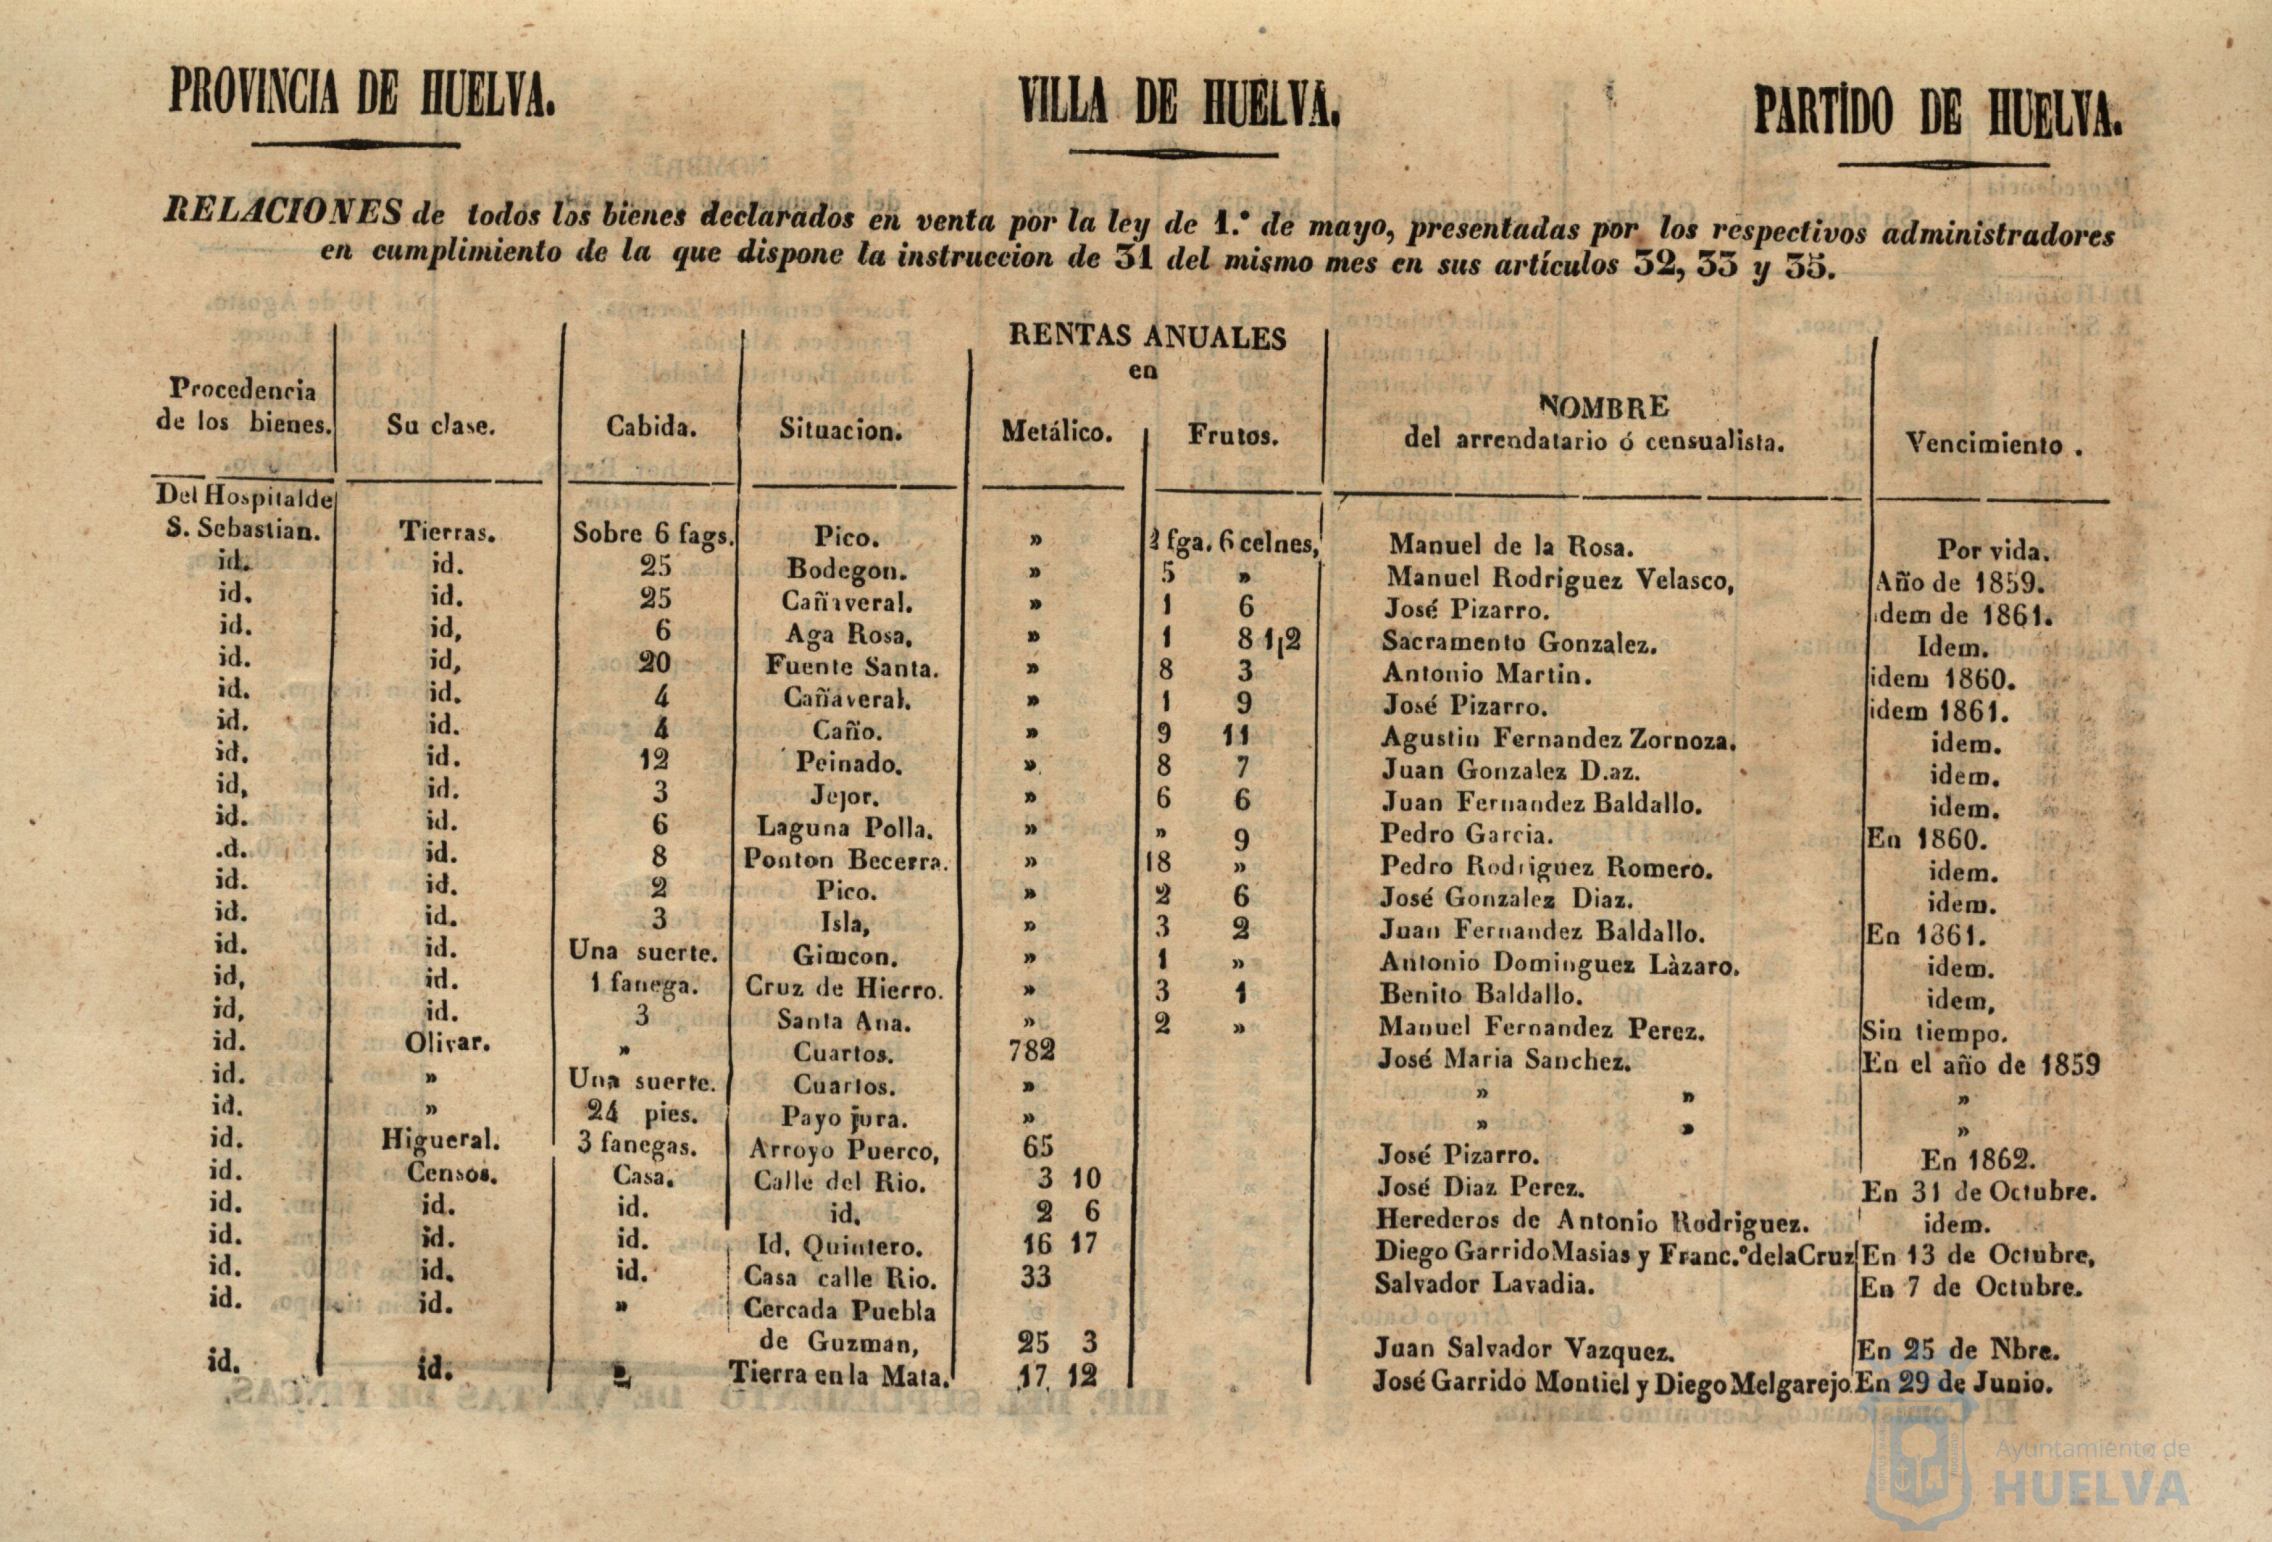 PROVINCIA DE HUELVA. VILLA DE HUELVA. PARTIDO DE HUELVA.
RELACIONES de todos los bienes declarados en venta por la ley de 1.º de mayo, presentadas por los respectivos administradores
en cumplimiento de la que dispone la instruccion de 31 del mismo mes en sus artículos 32, 33 y 35.
RENTAS ANUALES
en
Procedencia
de los bienes. Su clase. Cabida. Situacion. Metálico. Frutos. NOMBRE
del arrendatario ó censualista. Vencimiento.
Del Hospital de
S. Sebastian. Tierras. Sobre 6 fags. Pico. » fga. 6 celnes, Manuel de la Rosa. Por vida.
id. id. 25 Bodegon. » 5 » Manuel Rodriguez Velasco, Año de 1859.
id. id. 25 Cañaveral. » 1 6 José Pizarro. idem de 1861.
id. id, 6 Aga Rosa. » 1 8 1|2 Sacramento Gonzalez. Idem.
id. id, 20 Fuente Santa. » 8 3 Antonio Martin. idem 1860.
id. id. 4 Cañaveral. » 1 9 José Pizarro. idem 1861.
id. id. 4 Caño. » 9 11 Agustin Fernandez Zornoza. idem.
id. id. 12 Peinado. » 8 7 Juan Gonzalez D.az. idem.
id, id. 3 Jejor. » 6 6 Juan Fernandez Baldallo. idem.
id. id. 6 Laguna Polla. » » 9 Pedro Garcia. En 1860.
.d. id. 8 Ponton Becerra. » 18 » Pedro Rodriguez Romero. idem.
id. id. 2 Pico. » 2 6 José Gonzalez Diaz. idem.
id. id. 3 Isla, » 3 2 Juan Fernandez Baldallo. En 1861.
id. id. Una suerte. Gimcon. » 1 » Antonio Dominguez Làzaro. idem.
id, id. 1 fanega. Cruz de Hierro. » 3 1 Benito Baldallo. idem,
id, id. 3 Santa Ana. » 2 » Manuel Fernandez Perez. Sin tiempo.
id. Olivar. » Cuartos. 782 José Maria Sanchez. En el año de 1859
id. » Una suerte. Cuartos. » » » »
id. » 24 pies. Payo jura. » » » »
id. Higueral. 3 fanegas. Arroyo Puerco, 65 José Pizarro. En 1862.
id. Censos. Casa. Calle del Rio. 3 10 José Diaz Perez. En 31 de Octubre.
id. id. id. id. 2 6 Herederos de Antonio Rodriguez. idem.
id. id. id. Id. Quintero. 16 17 Diego Garrido Masias y Franc.º de la Cruz En 13 de Octubre,
id. id. id. Casa calle Rio. 33 Salvador Lavadia. En 7 de Octubre.
id. id. » Cercada Puebla
de Guzman, 25 3 Juan Salvador Vazquez. En 25 de Nbre.
id. id. » Tierra en la Mata. 17 12 José Garrido Montiel y Diego Melgarejo. En 29 de Junio.
Ayuntamiento de
HUELVA